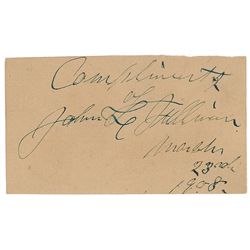 Compliments
of
John L Sullivan
March
23rd
1908